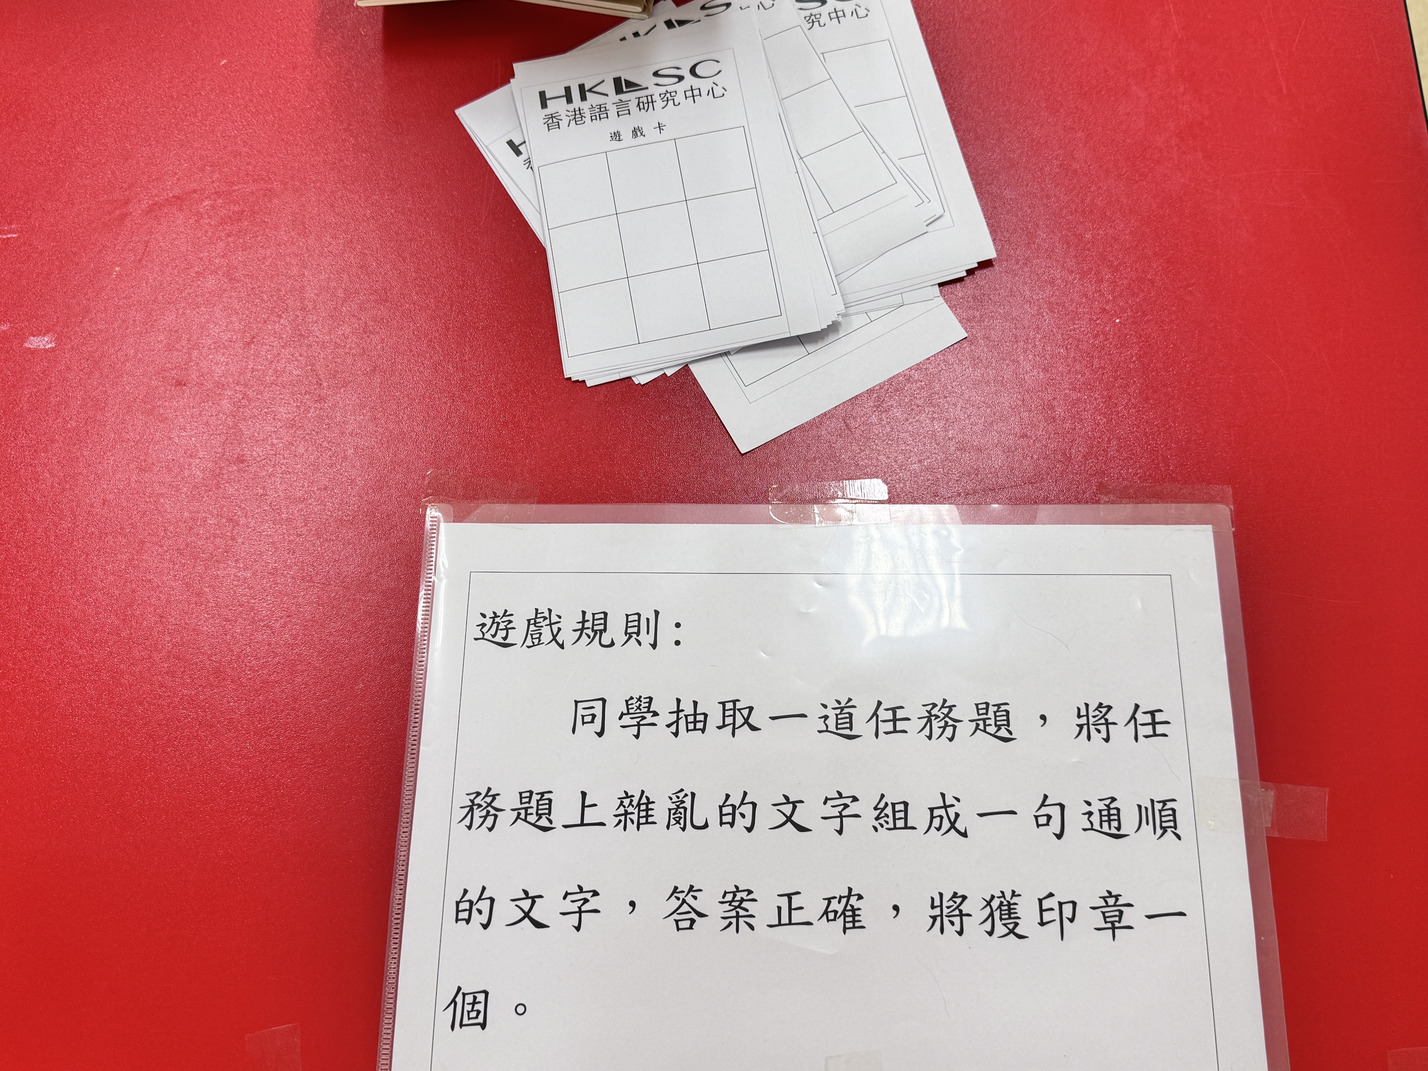 HKLSC
香港語言研究中心
遊戲卡
究中心
遊戲規則:
同學抽取一道任務題，將任
務題上雜亂的文字組成一句通順
的文字，答案正確，將獲印章一
個。